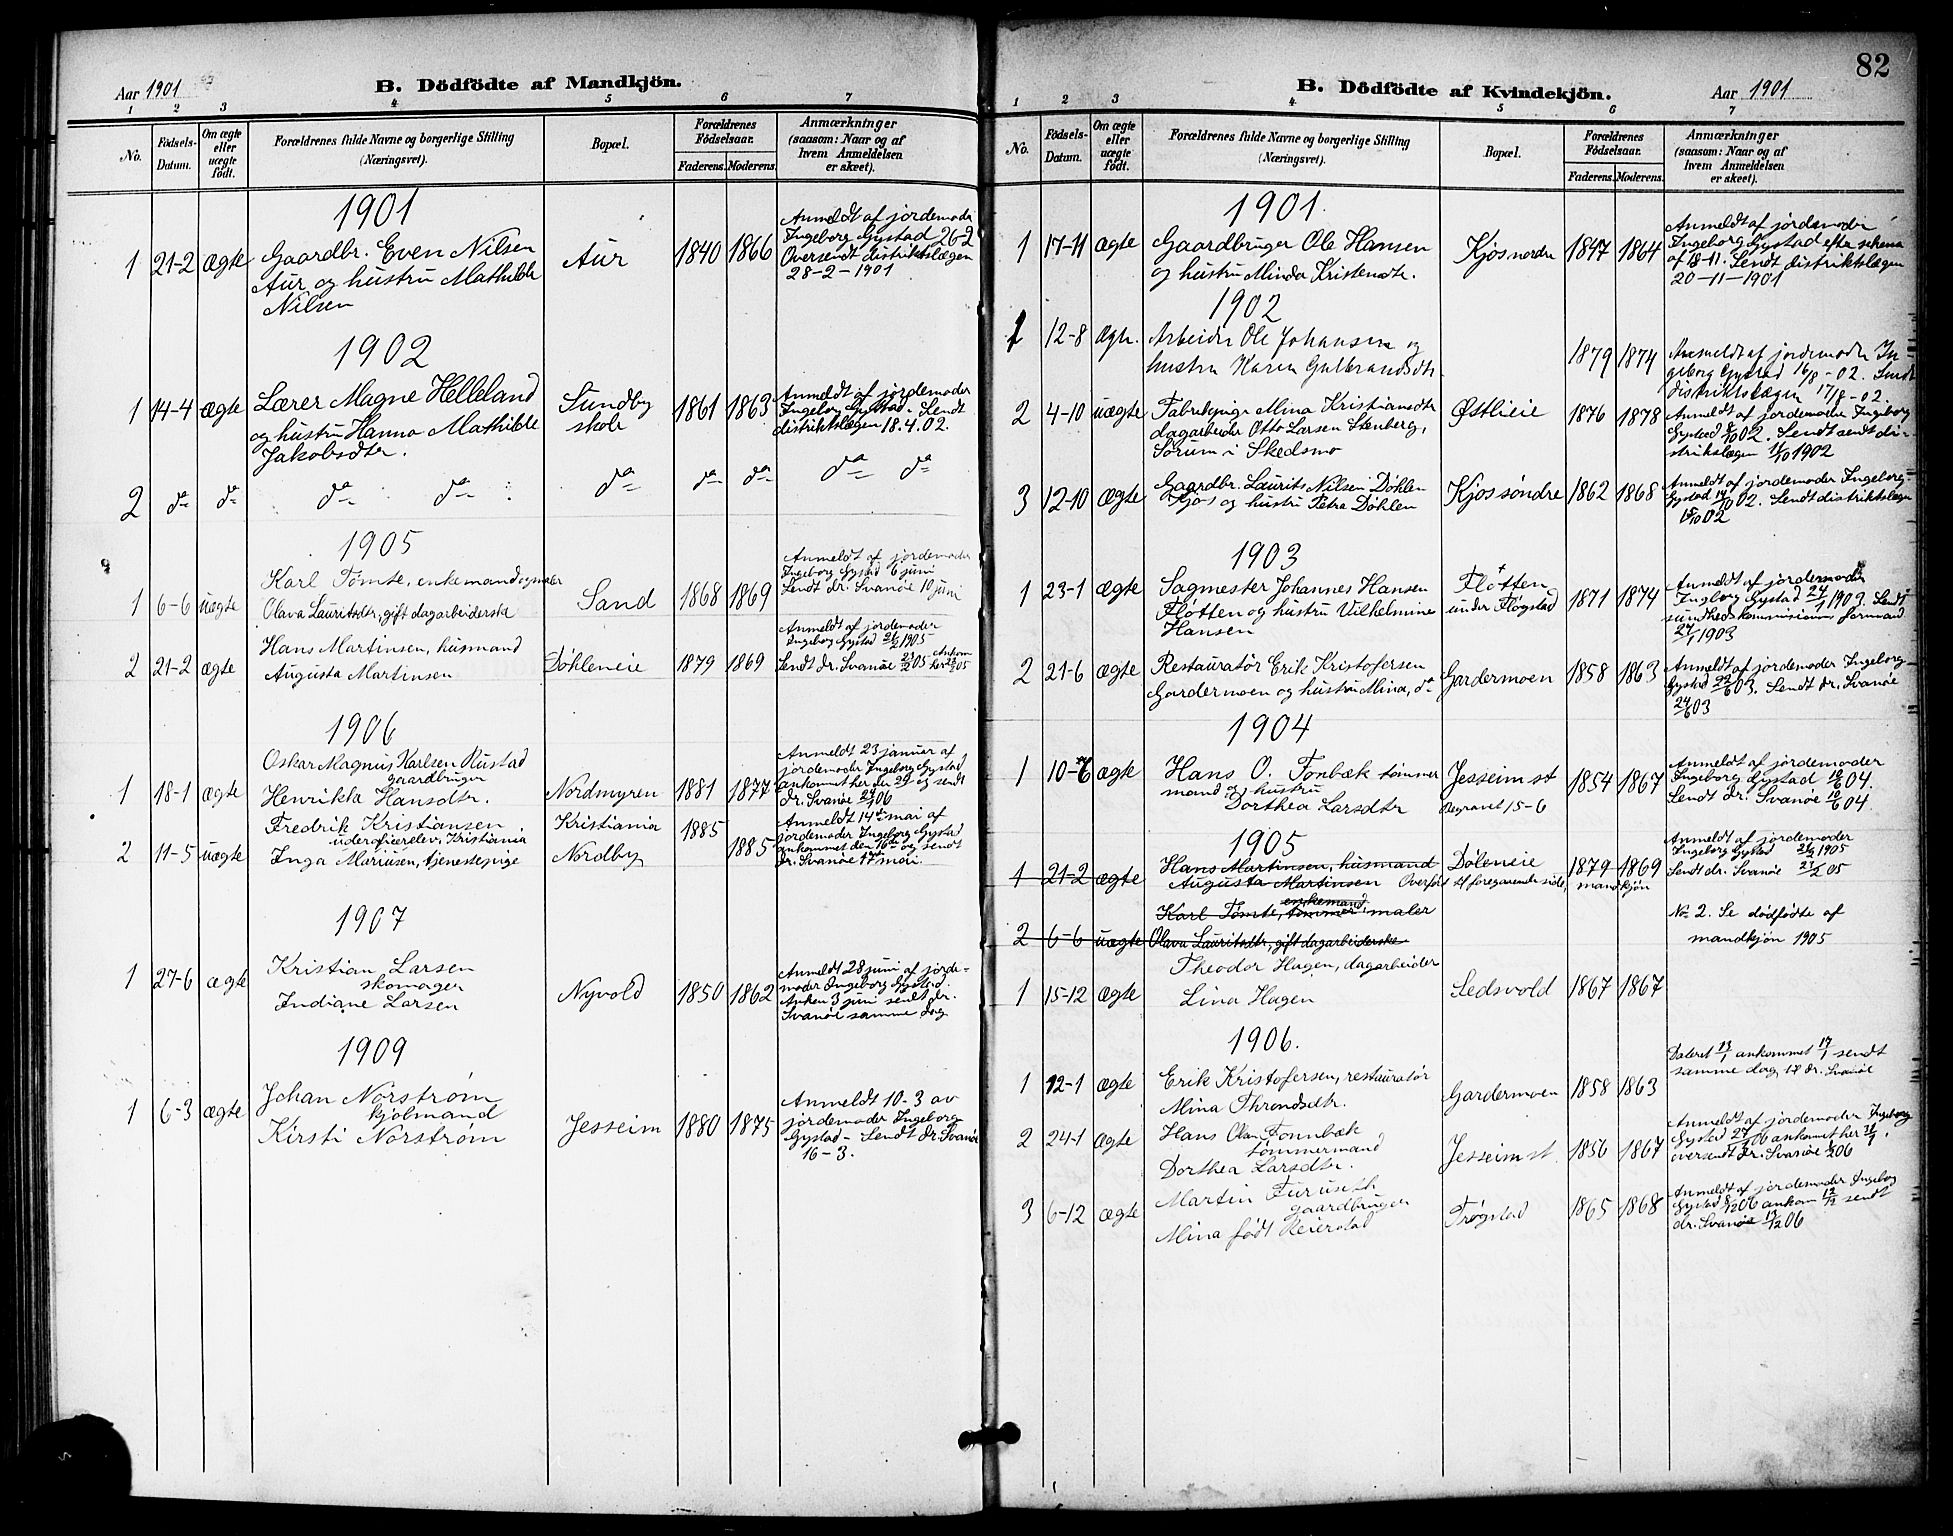 Aar 1901
B. Dödfödte af Mandkjön.
1 2 3 4 5 6 7
No.
Födsels-Datum.
Om ægte eller uægte födt.
Forældrenes fulde Navne og borgerlige Stilling
(Næringsvei).
Bopæl.
Forældrenes Fødselsaar.
Faderens. Moderens.
Anmærkninger
(saasom: Naar og af
hvem Anmeldelsen
er skeet).
1901
1 21-2 ægte Gaardbr. Even Nilsen
Aur og hustru Mathilde
Nilsen
Aur 1840 1866
Anmeldt af jordemoder
Ingeborg Gystad 26-2
Oversendt distriktslægen
28-2-1901
1902
1 14-4 ægte Lærer Magne Helleland
og hustru Hanna Mathilde
Jakobsdtr.
Sundby
skole
1861 1863
Anmeldt af jordemoder
Ingeborg Gystad. Sendt
distriktslægen 18.4.02.
2 do do do do do do do do do
1905
1 6-6 uægte Karl Tømte, enkemand og maler
Olava Lauritsdtr, gift dagarbeiderske
Sand 1868 1869
Anmeldt af jordemoder
Ingeborg Gystad 6 juni
Sendt dr. Svanøe 10 juni
2 21-2 ægte Hans Martinsen, husmand
Augusta Martinsen
Døhleneie 1879 1869
Anmeldt af jordemoder
Ingeborg Gystad 21/2 1905
Sendt dr. Svanøe 23/2 05
1906
1 18-1 ægte Oskar Magnus Karlsen Rustad
gaardbruger
Henrikka Hansdtr.
Nordmyren 1881 1877
Anmeldt 23 januar af
jordemoder Ingeborg Gystad
ankommet her den 29 og sendt
dr. Svanøe 29/1 06
2 11-5 uægte Fredrik Kristiansen
underofficerelev, Kristiania
Inga Mariusen, tjenestepige
Kristiania
Nordby
1885
1885
Anmeldt 14de mai af
jordemoder Ingeborg Gystad
ankommet den 16de og sendt
dr. Svanøe 17de mai
1907
1 27-6 ægte Kristian Larsen
skomager
Indiane Larsen
Nyvold 1850 1862
Anmeldt 28 juni af jorde-
moder Ingeborg Gystad.
Ankom 3 juni sendt dr.
Svanøe samme dag
1909
1 6-3 ægte Johan Norstrøm
kjøbmand
Kirsti Norstrøm
Jesseim 1880 1875
Anmeldt 10-3 av
jordemoder Ingeborg
Gystad - Sendt dr. Svanøe
16-3.
82
B. Dödfödte af Kvindekjön.
Aar 1901
1 2 3 4 5 6 7
No.
Födsels-Datum.
Om ægte eller uægte födt.
Forældrenes fulde Navne og borgerlige Stilling
(Næringsvei).
Bopæl.
Forældrenes Fødselsaar.
Faderens. Moderens.
Anmærkninger
(saasom: Naar og af
hvem Anmeldelsen
er skeet).
1901.
1 17-11 ægte Gaardbruger Ole Hansen
og hustru Minda Kristensdtr.
Kjos nordre 1847 1864
Anmeldt af jordemoder
Ingeborg Gystad efter schema
af 18-11. Sendt distriktslægen
20-11-1901
1902
1 12-8 ægte. Arbeider Ole Johansen og
hustru Karen Gulbrandsdtr.
1879 1874
Anmeldt af jordemoder In-
geborg Gystad 16/8-02. Sendt
distriktslægen 17/8-02.
2 4-10 uægte Fabrikpige Mina Kristiansdtr
dagarbeider Otto Larsen Stenberg,
Sørum i Skedsmo
Østlieie 1876 1878
Anmeldt af jordemoder Ingeborg
Gystad 8/10 02. Sendt sendt di-
strikslægen 11/10 1902
3 12-10 ægte Gaardbr. Laurits Nilsen Døhlen
Kjos og hustru Petra Døhlen
Kjos søndre 1862 1868
Anmeldt af jordemoder Ingeborg
Gystad 14/10 02. Sendt distriktslægen
15/10 02
1903
1 23-1 ægte Sagmester Johannes Hansen
Fløtten og hustru Vilhelmine
Hansen
Fløtten
under Fløgstad
1871 1874
Anmeldt af jordemoder
Ingeborg Gystad 24/1 1903. Sendt
sundhedskommissionens formand
27/1 1903
2 21-6 ægte Restauratør Erik Kristofersen
Gardermoen og hustru Mina, do
Gardermoen 1858 1863
Anmeldt af jordemoder Ingeborg
Gystad 22/6 03. Sendt dr. Svanøe
24/6 03
1904
1 10-6 ægte Hans O. Fonbæk tømmer
mand og hustru
Dorthea Larsdtr
Jesseim st
Begravet 15-6
1854 1867
Anmeldt af jordemoder
Ingeborg Gystad 10/6 04.
Sendt dr. Svanøe 10/6 04.
1905
1 21-2 ægte Hans Martinsen, husmand
Augusta Martinsen Overført til foregaaende side, mandkjøn
Døleneie 1879 1869
Anmeldt af jordemoder
Ingeborg Gystad 21/2 1905
Sendt dr. Svanøe 23/2 05
2 6-6 uægte enkemand
Karl Tømte, tømmer, maler
Olava Lauritsdtr, gift dagarbeiderske
No 2. Se dødfødte af
mandkjøn 1905
1 15-12 ægte Theodor Hagen, dagarbeider
Lina Hagen
Sedsvold 1867 1867
1906.
1 12-1 ægte Erik Kristofersen, restauratør
Mina Throndsdtr.
Gardermoen 1858 1863
Dateret 13/1 ankommet 17/1 sendt
samme dag til dr. Svanøe
2 24-1 ægte Hans Olsen Fonnbæk
tømmermand
Dorthea Larsdtr.
Jesseim st. 1856 1867
Anmeldt af jordemoder Ingeborg
Gystad 27/1 06 ankommet her
oversendt dr. Svanøe 06
3 6-12 ægte Martin Furuseth
gaardbruger
Mina født Reierstad
Trøgstad 1865 1868
Anmeldt af jordemoder Ingeborg
Gystad 8/12 06 ankom 12/12 sendt
dr. Svanøe 13/12 06